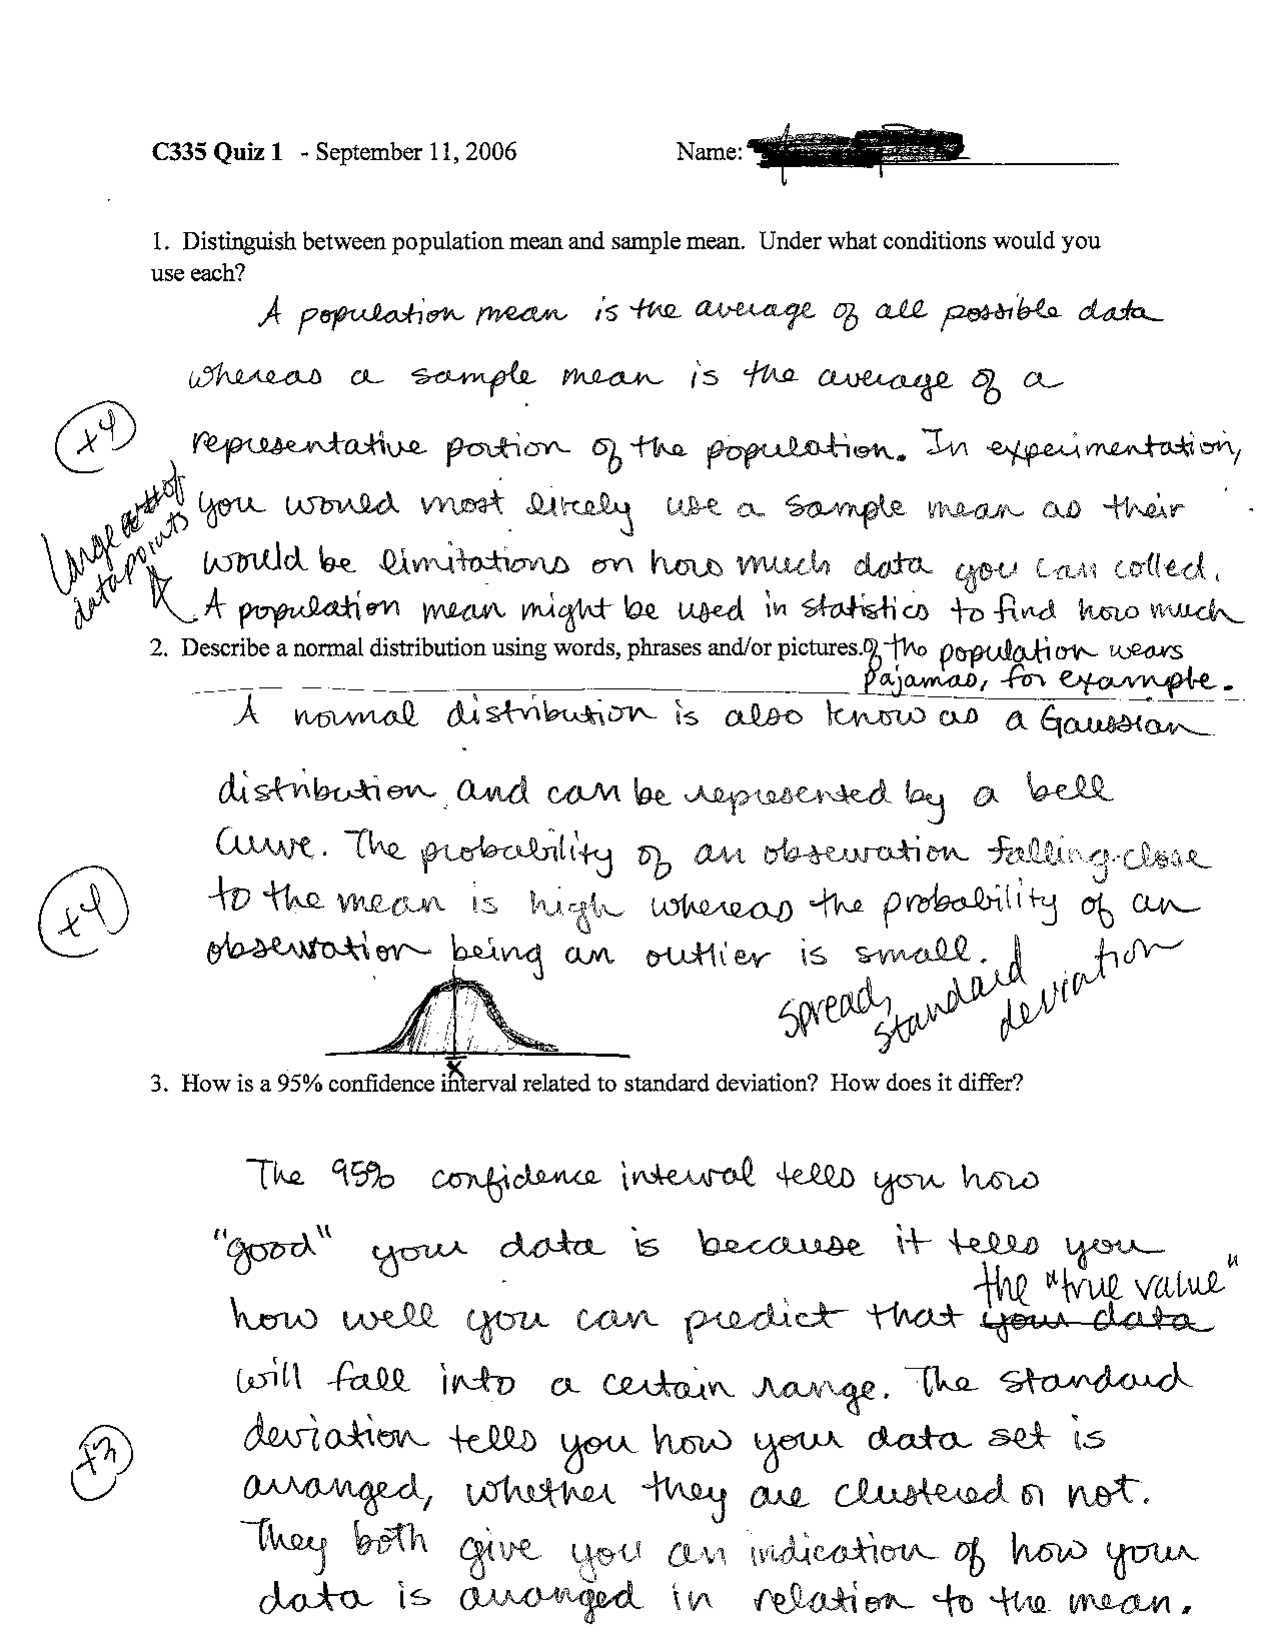 C335 Quiz 1 - September 11, 2006 Name:
1. Distinguish between population mean and sample mean. Under what conditions would you
use each?
A population mean is the average of all possible data
whereas a sample mean is the average of a
+4
representative portion of the population. In experimentation,
you would most likely use a sample mean as their
would be limitations on how much data you can collect.
Large # of
data points
A population mean might be used in statistics to find how much
2. Describe a normal distribution using words, phrases and/or pictures.
of the population wears
pajamas, for example.
A normal distribution is also know as a Gaussian
distribution and can be represented by a bell
curve. The probability of an observation falling close
+4
to the mean is high whereas the probability of an
observation being an outlier is small.
spread, standard deviation
x
3. How is a 95% confidence interval related to standard deviation? How does it differ?
The 95% confidence interval tells you how
"good" your data is because it tells you
the "true value"
how well you can predict that your data
will fall into a certain range. The standard
deviation tells you how your data set is
+3
arranged, whether they are clustered or not.
They both give you an indication of how your
data is arranged in relation to the mean.